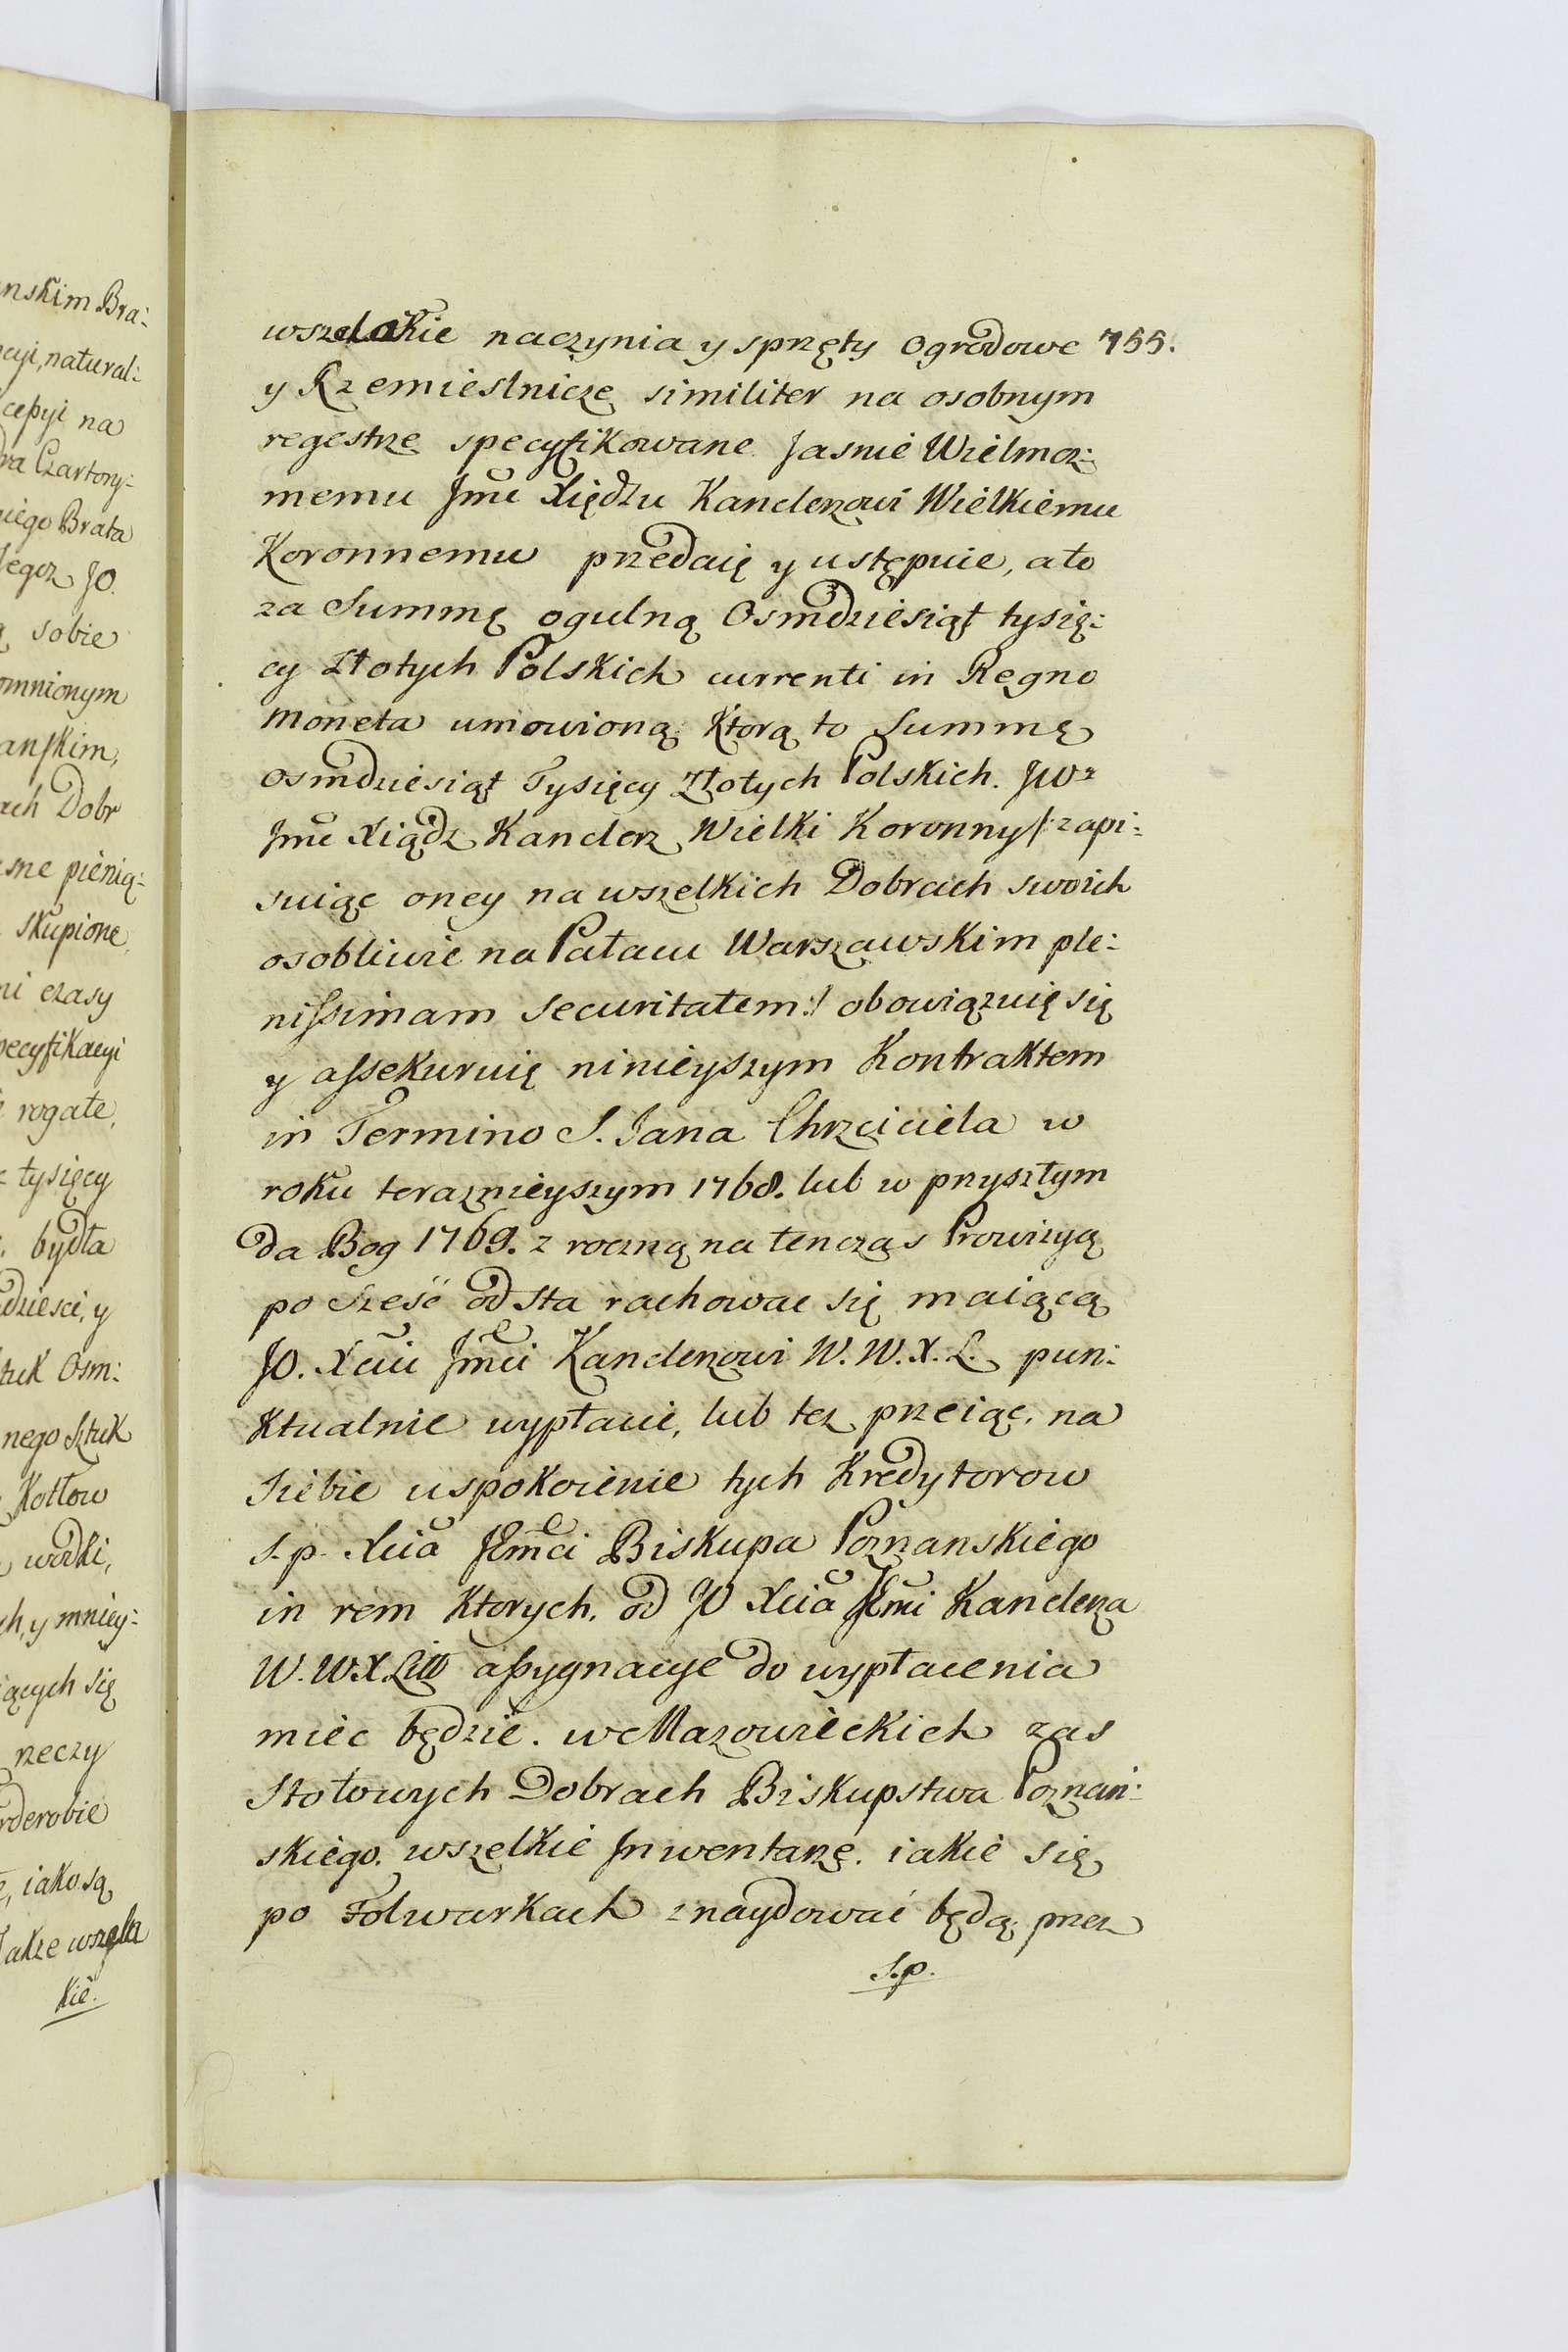 nskim Bra:
cyi, natural:
cepyi na
ra Czartory:
niego Brata
Tegoz JO.
sobie
omnionym
anskim,
ach Dobr
sne pienią:
skupione
ni czasy
pecyfikacyi
rogate,
tysięcy
bydła
dziesci, y
tuk Osm:
nego Sztuk
Kotłow
wodki,
ch, y mniey:
iących się
rzeczy
rderobie
iako są
Takze wszela
kie.
wszelakie naczynia y sprzęty Ogrodowe 755.
y Rzemieslnicze similiter na osobnym
regestrze specyfikowane Jasnie Wielmoz:
nemu Jmći Xiędzu Kanclerzowi Wielkiemu
Koronnemu przedaię y ustępuie, a to
za Summę ogulną Osmdziesiąt tysię:
cy Złotych Polskich currenti in Regno
moneta umowioną Ktorą to Summę
osmdziesiąt Tysięcy Złotych Polskich. JWz
Jmć Xiądz Kanclerz Wielki Koronny /: zapi:
suiąc oney na wszelkich Dobrach swoich
osobliwie na Pałacu Warszawskim ple:
nissimam securitatem :/ obowiązuię się
y assekuruię ninieyszym Kontraktem
in Termino S. Jana Chrzciciela w
roku teraznieyszym 1768. lub w przyszłym
da Bog 1769. z roczną na tenczas Prowizyą
po Szesć od sta rachowac się maiącą
JO. Xciu Jmći Kanclerzowi W. W. X. L. pun:
Ktualnie wypłacic, lub tez przeiąc, na
siebie uspokoienie tych Kredytorow
s. p. Xcia JEmći Biskupa Poznanskiego
in rem Ktorych. od JO Xcia JEmći Kanclerza
W. W X Litt assygnacye do wypłacenia
miec będzie. w Mazowieckich zas
Stołowych Dobrach Biskupstwa Poznań:
skiego. wszelkie Inwentarze. iakie się
po Folwarkach znaydować będą przez
s. p.